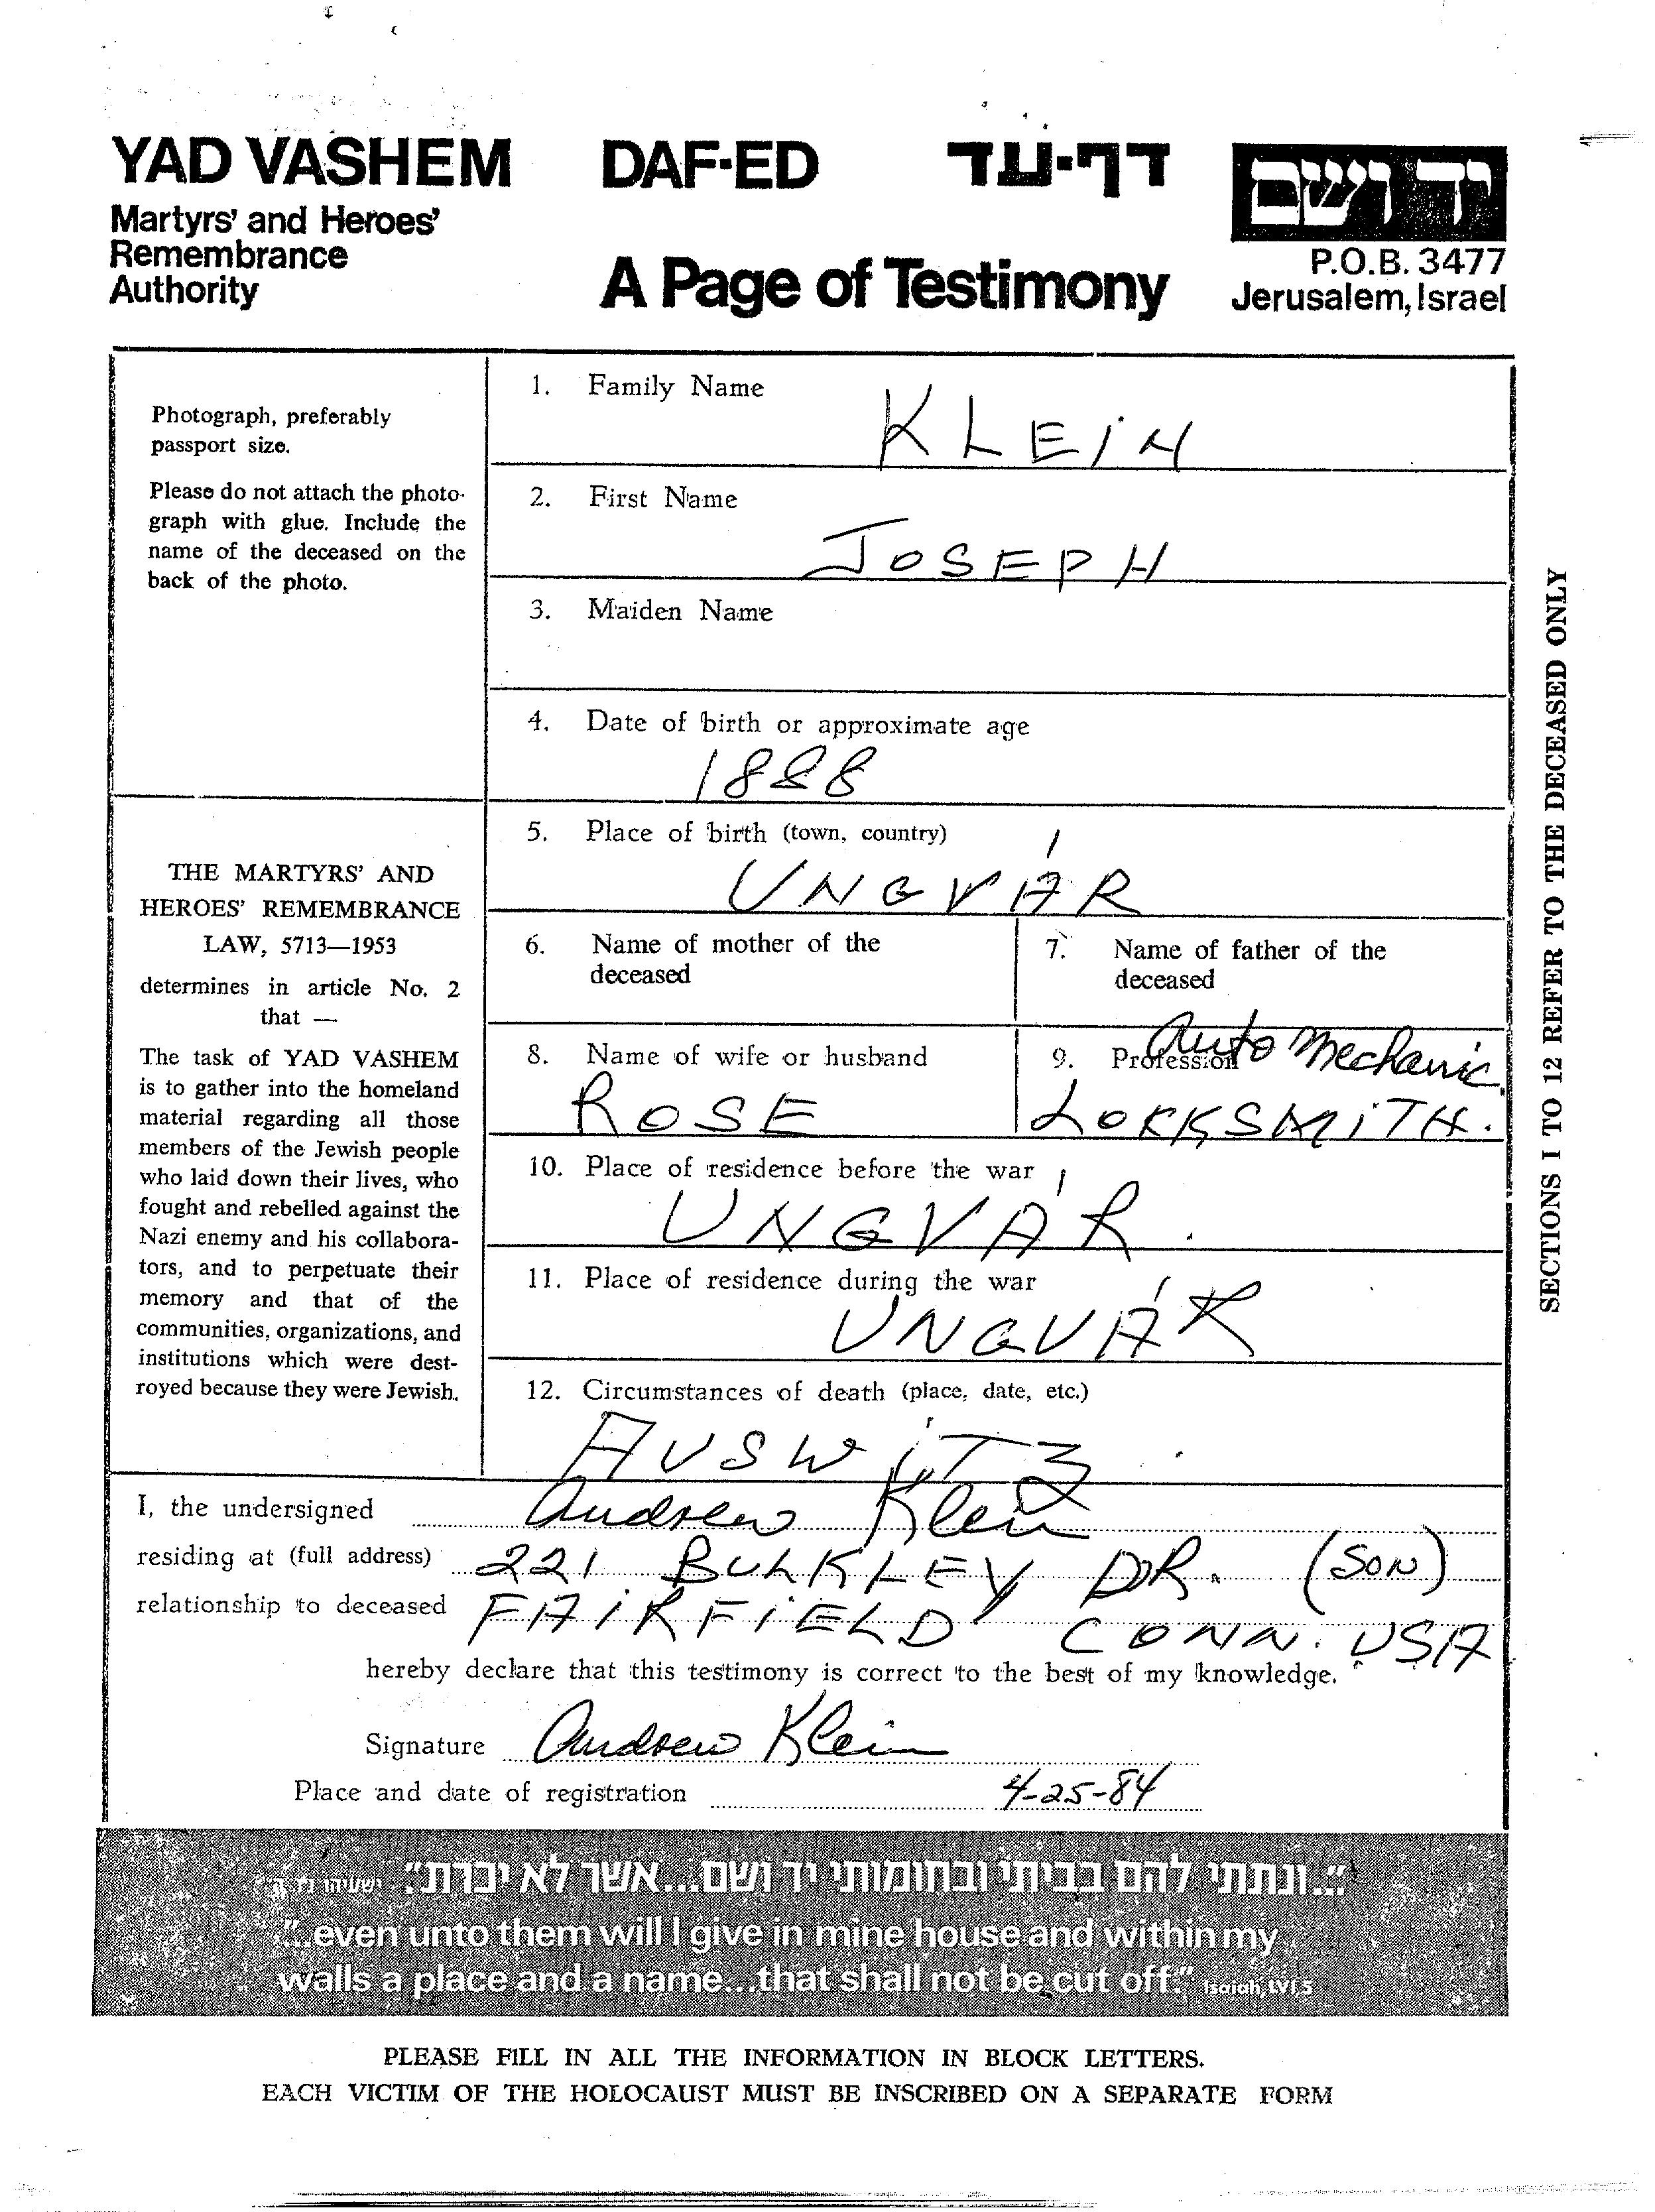 YAD VASHEM DAF-ED דף-עד יד ושם
Martyrs' and Heroes'
Remembrance
Authority
A Page of Testimony
P.O.B. 3477
Jerusalem, Israel
Photograph, preferably
passport size.
Please do not attach the photo-
graph with glue. Include the
name of the deceased on the
back of the photo.
THE MARTYRS' AND
HEROES' REMEMBRANCE
LAW, 5713—1953
determines in article No. 2
that —
The task of YAD VASHEM
is to gather into the homeland
material regarding all those
members of the Jewish people
who laid down their lives, who
fought and rebelled against the
Nazi enemy and his collabora-
tors, and to perpetuate their
memory and that of the
communities, organizations, and
institutions which were dest-
royed because they were Jewish.
1. Family Name
KLEIN
2. First Name
JOSEPH
3. Maiden Name
4. Date of birth or approximate age
1888
5. Place of birth (town, country)
UNGVÁR
6. Name of mother of the
deceased
7. Name of father of the
deceased
8. Name of wife or husband
ROSE
9. Profession Auto Mechanic
LOKKSMITH.
10. Place of residence before the war
UNGVÁR.
11. Place of residence during the war
UNGVÁR
12. Circumstances of death (place, date, etc.)
AUSWITZ
I, the undersigned Andrew Klein
residing at (full address) 221 BULKLEY DR. (SON)
relationship to deceased FAIRFIELD CONN. USA
hereby declare that this testimony is correct to the best of my knowledge.
Signature Andrew Klein
Place and date of registration 4-25-84
SECTIONS 1 TO 12 REFER TO THE DECEASED ONLY
"...ונתתי להם בביתי ובחומותי יד ושם...אשר לא יכרת". ישעיהו נו, ה
"...even unto them will I give in mine house and within my
walls a place and a name...that shall not be cut off." Isaiah, LVI, 5
PLEASE FILL IN ALL THE INFORMATION IN BLOCK LETTERS.
EACH VICTIM OF THE HOLOCAUST MUST BE INSCRIBED ON A SEPARATE FORM